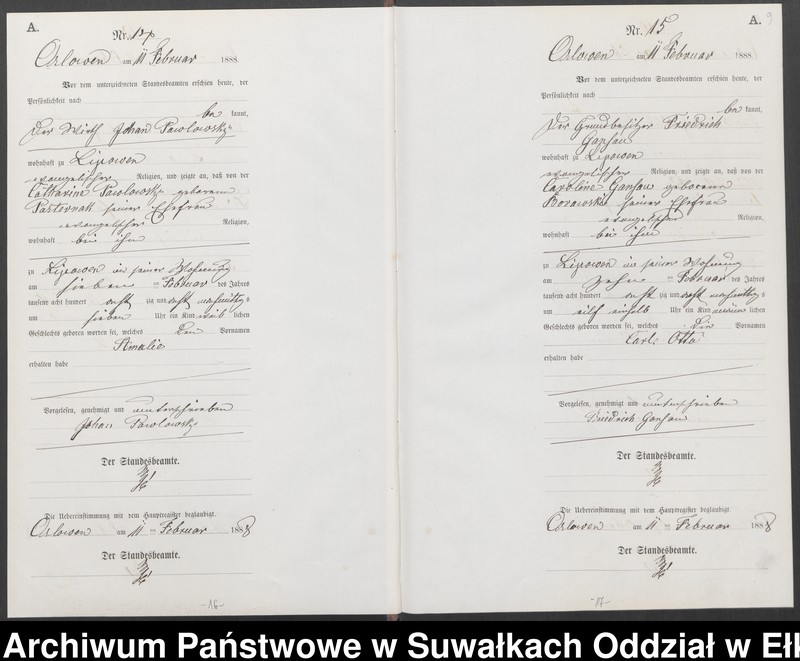 A.
Nr. 14
Orlowen am 11 Februar 1888.
Vor dem unterzeichneten Standesbeamten erschien heute, der
Persönlichkeit nach
be kannt,
Der Wirth Johan Pawlowsky
wohnhaft zu Lipowen
evangelischer Religion, und zeigte an, daß von der
Catharine Pawlowsky geborenen
Pasternak seiner Ehefrau
evangelischer Religion,
wohnhaft bei ihm
zu Lipowen in seiner Wohnung
am sieben ten Februar des Jahres
tausend acht hundert acht zig und acht nachmittags
um sieben Uhr ein Kind weib lichen
Geschlechts geboren worden sei, welches den Vornamen
Amalie
erhalten habe
Vorgelesen, genehmigt und unterschrieben
Johan Pawlowsky
Der Standesbeamte.
Die Uebereinstimmung mit dem Hauptregister beglaubigt.
Orlowen am 11 ten Februar 1888
Der Standesbeamte.
-16-
A. 9
Nr. 15
Orlowen am 11 Februar 1888
Vor dem unterzeichneten Standesbeamten erschien heute, der
Persönlichkeit nach
be kannt,
Der Grundbesitzer Friedrich
Gansau
wohnhaft zu Lipowen
evangelischer Religion, und zeigte an, daß von der
Caroline Gansau geborenen
Borowski seiner Ehefrau
evangelischer Religion,
wohnhaft bei ihm
zu Lipowen in seiner Wohnung
am zehn ten Februar des Jahres
tausend acht hundert acht zig und acht nachmittags
um eilf einhalb Uhr ein Kind männ lichen
Geschlechts geboren worden sei, welches die Vornamen
Carl Otto
erhalten habe
Vorgelesen, genehmigt und unterschrieben
Friedrich Gansau
Der Standesbeamte.
Die Uebereinstimmung mit dem Hauptregister beglaubigt.
Orlowen am 11 ten Februar 1888
Der Standesbeamte.
-17-
Archiwum Państwowe w Suwałkach Oddział w Ełk